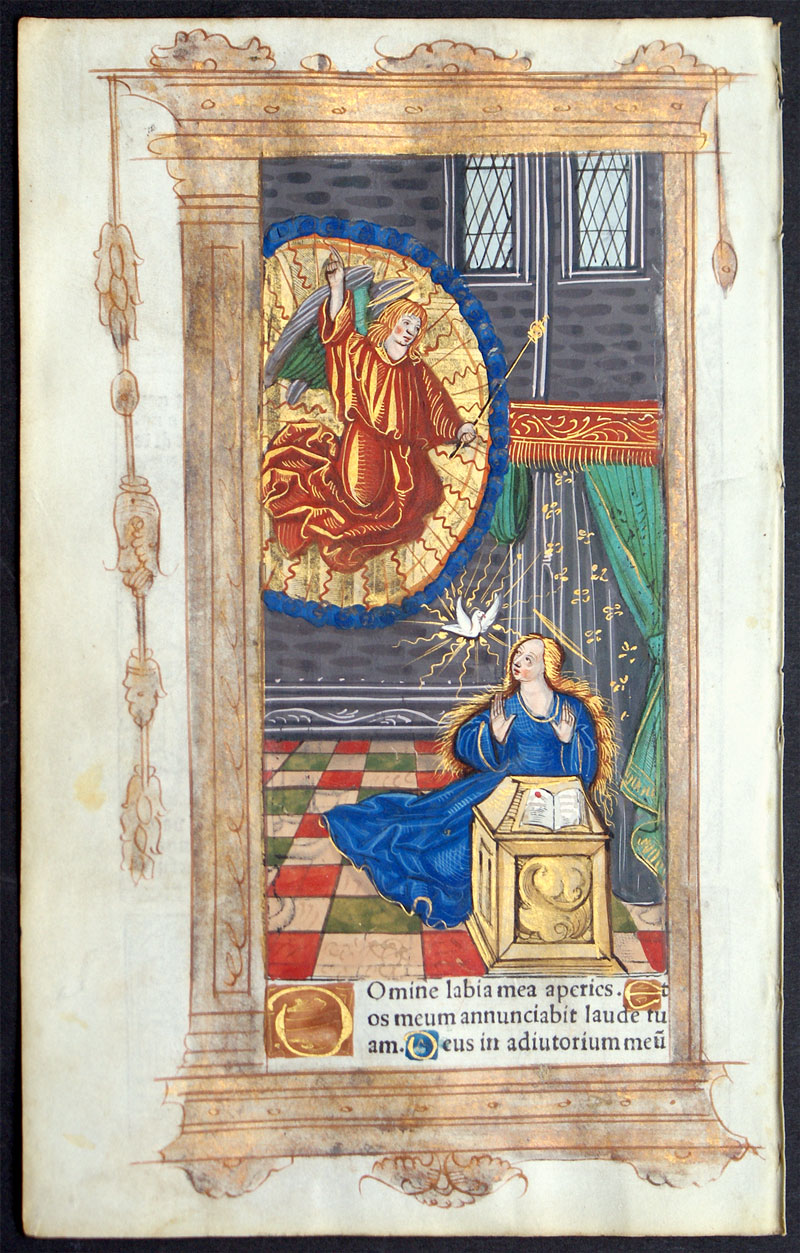 Domine labia mea aperies. Et
os meum annunciabit laudē tu
am. Deus in adiutorium meū